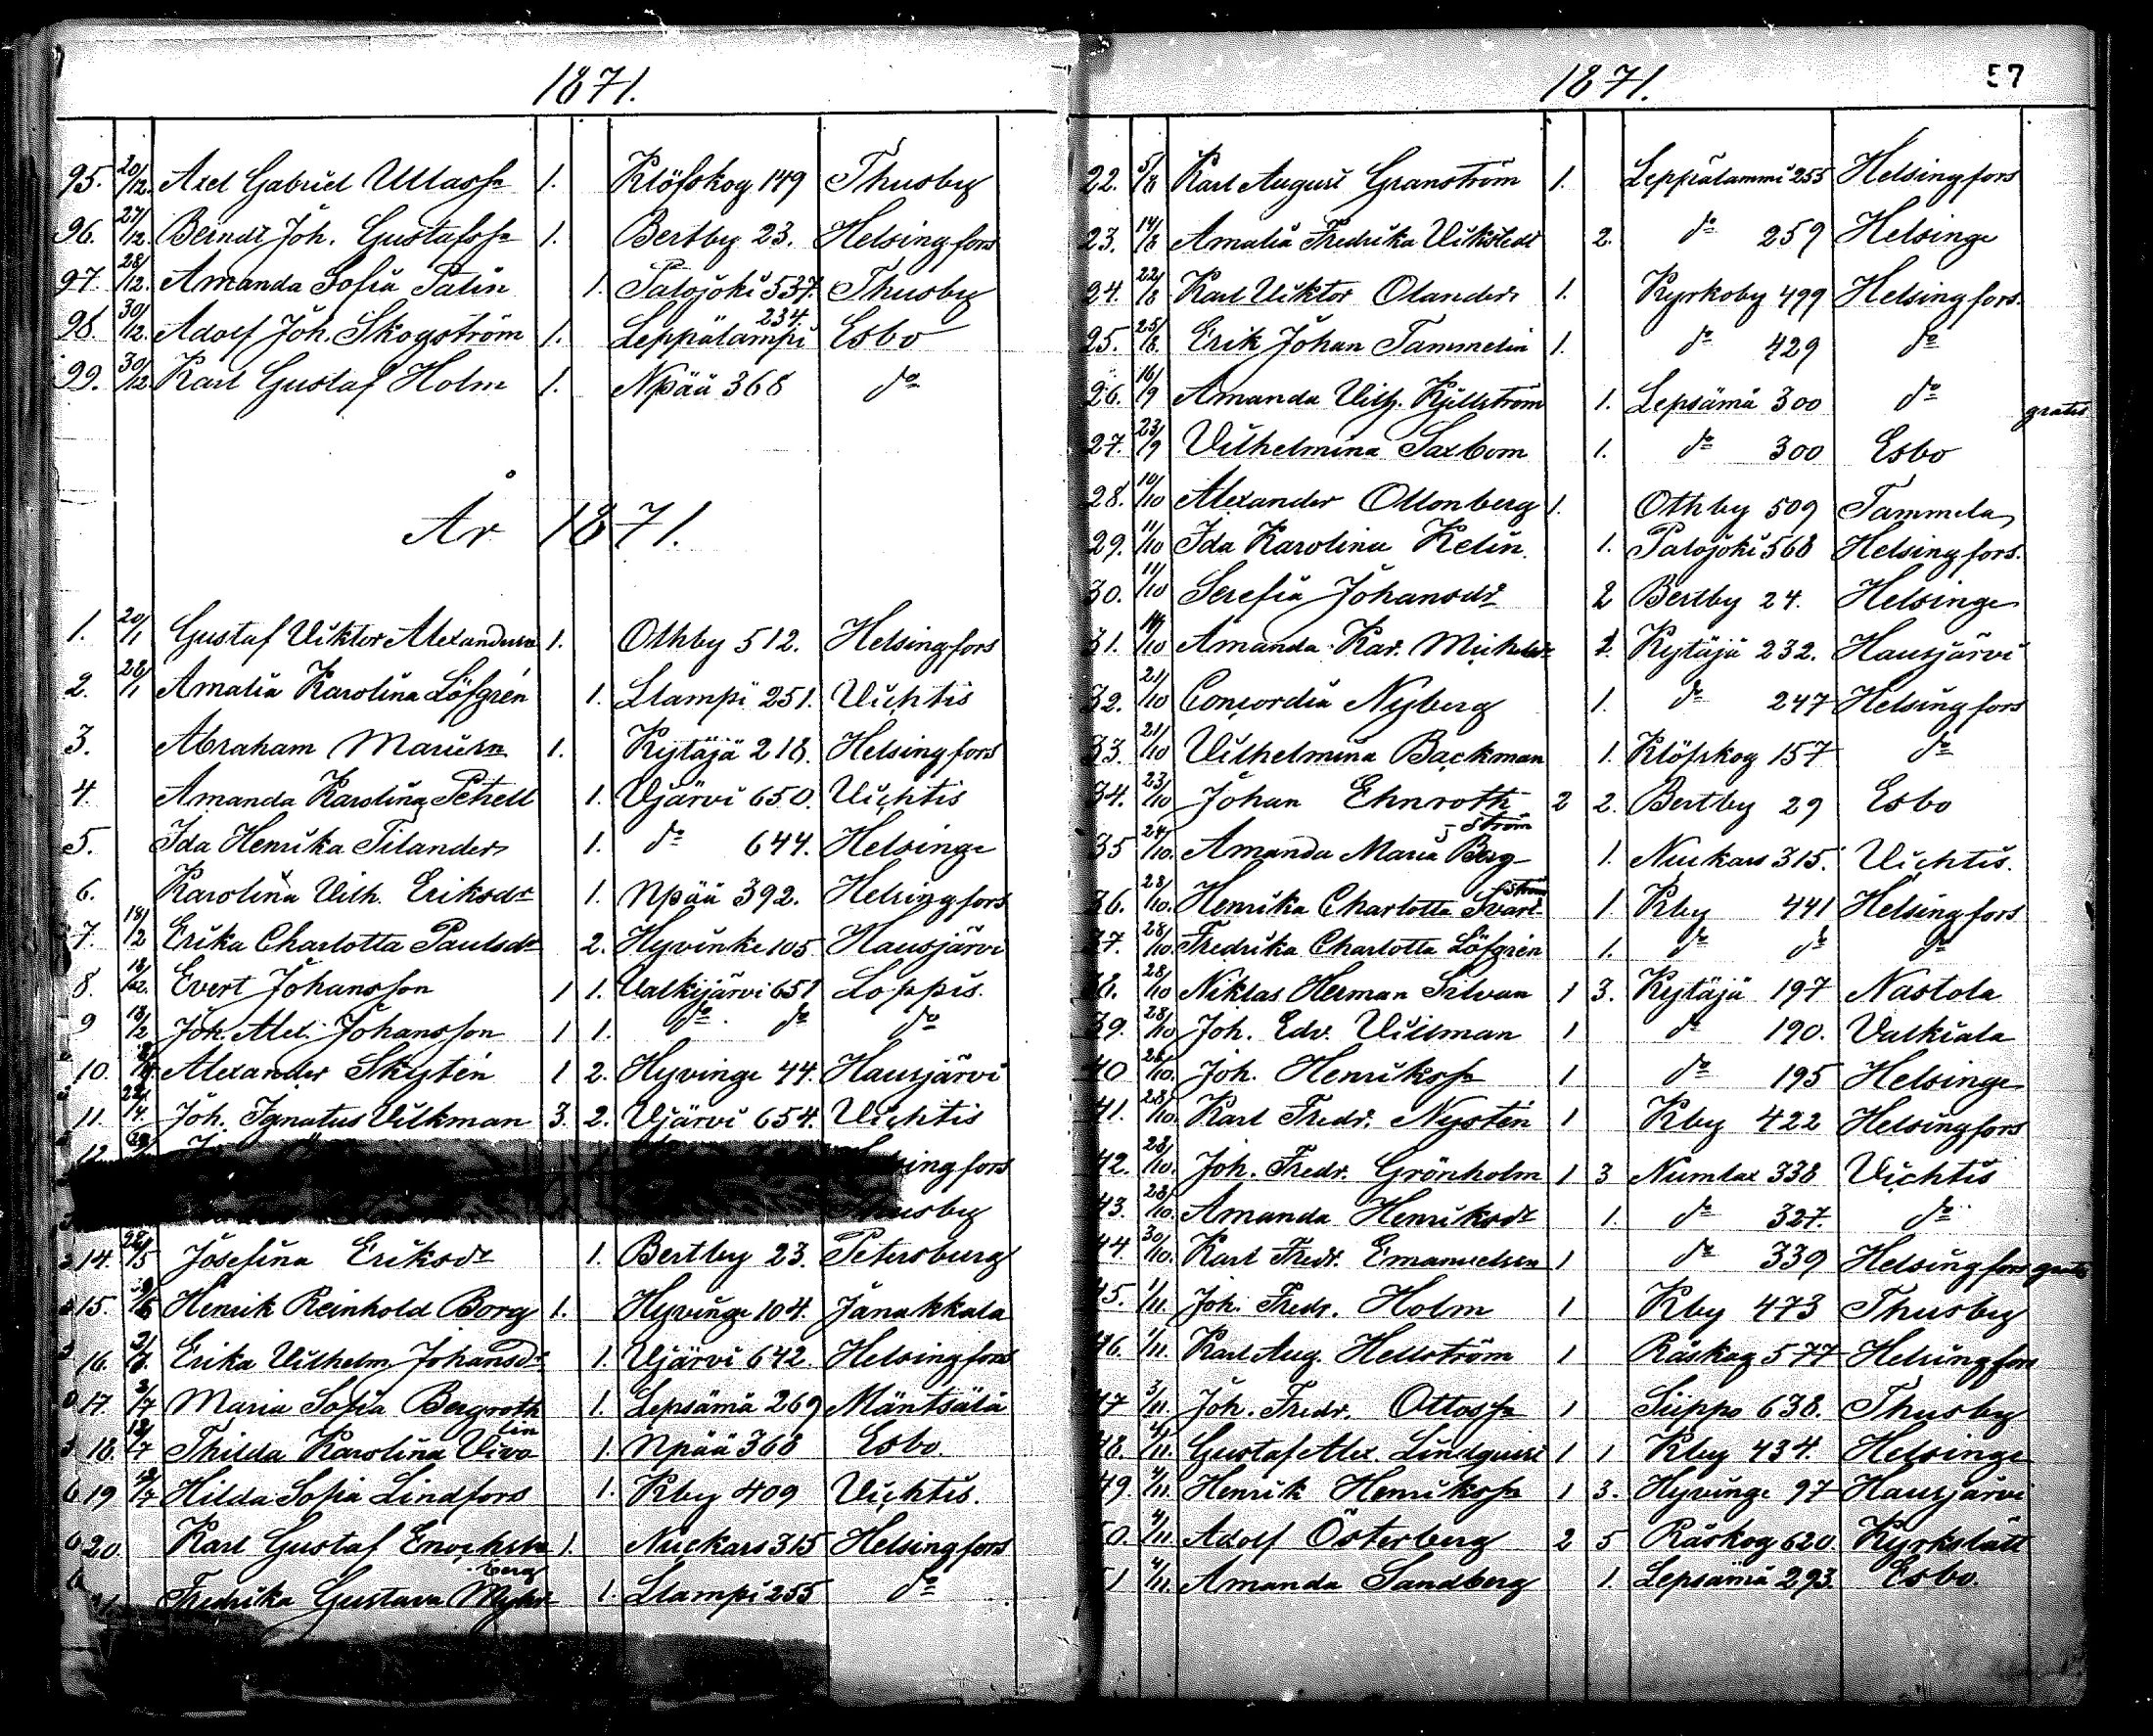 1871.
95. 20/12. Axel Gabriel Ullassn 1. Klöfskog 149 Thusby
96. 27/12. Berndt Joh. Gustafssn 1. Bertby 23. Helsingfors
97. 28/12. Amanda Sofia Palin 1. Palojoki 537. Thusby
98. 30/12. Adolf Joh. Skogström 1. Leppälampi 234. Esbo
99. 30/12. Karl Gustaf Holm 1. Npää 368 do
År 1871.
1. 20/1 Gustaf Viktor Alexandersn 1. Othby 512. Helsingfors
2. 28/1 Amalia Karolina Löfgrén 1. Llampi 251. Vichtis
3. Abraham Mariisn 1. Kytäjä 218. Helsingfors
4. Amanda Karolina Petrell 1. Vjärvi 650. Vichtis
5. Ida Henrika Tilander 1. do 644. Helsinge
6. Karolina Vilh. Eriksdr 1. Npää 392. Helsingfors
7. 18/2 Erika Charlotta Paulsdr 2. Hyvinke 105 Hausjärvi
8. 18/2. Evert Johansson 1 1. Valkijärvi 651 Loppis.
9 18/2 Joh. Alex. Johansson 1 1. do do do
10. Alexander Skytén 1 2. Hyvinge 44. Hausjärvi
11. 22/4. Joh. Ignatus Vilkman 3. 2. Vjärvi 654. Vichtis
12.
14. /5 Josefina Eriksdr 1. Bertby 23. Petersburg
15. Henrik Reinhold Borg 1. Hyvinge 104. Janakkala
16. Erika Vilhelm. Johansdr 1. Vjärvi 642. Helsingfors
17. 3/7 Maria Sofia Bergroth 1. Lepsämä 269 Mäntsälä
18. 13/7 Thilda Karolina Vivolin 1. Npää 368 Esbo.
19 /7 Hilda Sofia Lindfors 1. Kby 409 Vichtis.
20. Karl Gustaf Enochssn 1. Nuckars 315 Helsingfors
Fredrika Gustava Myhrberg 1. Llampi 255 do
1871. 57
22. 5/8 Karl August Granström 1. Leppälammi 255 Helsingfors
23. 14/8 Amalia Fredrika Vikstedt 2. do 259 Helsinge
24. 22/8 Karl Viktor Olander 1. Kyrkoby 499 Helsingfors.
25. 25/8. Erik Johan Tammelin 1. do 429 do
26. 16/9 Amanda Vilh. Kjellström 1. Lepsämä 300 do gratis
27. 23/9 Vilhelmina Saxbom 1. do 300 Esbo
28. 10/10 Alexander Ollonberg 1. Othby 509 Tammela
29. 11/10 Ida Karolina Kelin. 1. Palojoki 568 Helsingfors.
30. 11/10 Serefia Johansdr 2 Bertby 24. Helsinge
31. 14/10 Amanda Kar. Michelsdr 1. Kytäjä 232. Hausjärvi
32. 21/10 Concordia Nyberg 1. do 247 Helsingfors
33. 21/10 Vilhelmina Backman 1. Klöfskog 157 do
34. 23/10 Johan Ehnroth 2 2. Bertby 29 Esbo
35 24/10. Amanda Maria Bergström 1. Nuckars 315. Vichtis.
36. 28/10. Henrika Charlotta Svartström 1. Kby 441 Helsingfors
37. 28/10. Fredrika Charlotta Löfgrén 1. do do do
38. 28/10 Niklas Herman Silvan 1 3. Kytäjä 197 Nastola
39. 28/10 Joh. Edv. Villman 1 do 190. Valkiala
40 28/10. Joh. Henrikssn 1 do 195 Helsinge
41. 28/10. Karl Fredr. Nystén 1 Kby 422 Helsingfors
42. 28/10. Joh. Fredr. Grönholm 1 3 Numlax 338 Vichtis
43. 28/10. Amanda Henriksdr 1. do 327. do
44. 30/10. Karl Fredr. Emanuelson 1 do 339 Helsingfors gratis
45. 1/11. Joh. Fredr. Holm 1 Kby 473 Thusby
46. 1/11. Karl Aug. Hellström 1 Råskog 577 Helsingfors
47 3/11. Joh. Fredr. Ottossn 1 Siippo 638. Thusby
48. 4/11. Gustaf Alex. Lindqvist 1 1 Kby 434. Helsinge
49. 4/11. Henrik Henrikssn 1 3. Hyvinge 97 Hausjärvi
50. 4/11. Adolf Österberg 2 5 Råskog 620. Kyrkslätt
51 4/11. Amanda Sandberg 1. Lepsämä 293. Esbo.